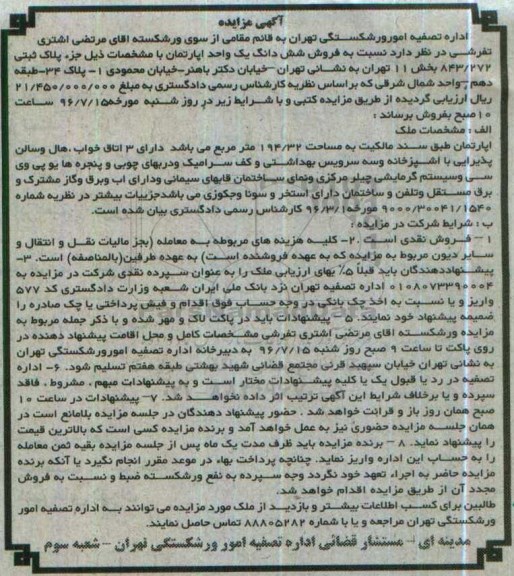 آگهی مزایده
اداره تصفیه امورورشکستگی تهران به قائم مقامی از سوی ورشکسته اقای مرتضی اشتری
تفرشی در نظر دارد نسبت به فروش شش دانگ یک واحد اپارتمان با مشخصات ذیل جزء پلاک ثبتی
۸۴۳/۲۷۲ بخش ۱۱ تهران به نشانی تهران –خیابان دکتر باهنر–خیابان محمودی ۱– پلاک ۳۳–طبقه
دهم –واحد شمال شرقی که براساس نظریه کارشناس رسمی دادگستری به مبلغ ۲۱/۴۵۰/۰۰۰/۰۰۰
ریال ارزیابی گردیده از طریق مزایده کتبی و با شرایط زیر در روز شنبه مورخه۹۶/۷/۱۵ ساعت
۱۰صبح بفروش برساند :
الف : مشخصات ملک
اپارتمان طبق سند مالکیت به مساحت ۱۹۴/۳۲ متر مربع می باشد دارای ۳ اتاق خواب ،هال وسالن
پذیرایی با اشپزخانه وسه سرویس بهداشتی و کف سرامیک ودربهای چوبی و پنجره ها یو پی وی
سی وسیستم گرمایشی چیلر مرکزی ونمای ساختمان قابهای سیمانی ودارای اب وبرق وگاز مشترک و
برق مستقل وتلفن و ساختمان دارای استخر و سونا وجکوزی می باشدجزییات بیشتر در نظریه شماره
۹۰۰۰/۳۰۰۴۱/۱۵۴۰ مورخه۹۶/۳/۱ کارشناس رسمی دادگستری بیان شده است.
ب : شرایط شرکت در مزایده :
۱– فروش نقدی است .۲– کلیه هزینه های مربوطه به معامله (بجز مالیات نقل و انتقال و
سایر دیون مربوط به مزایده که به عهده فروشنده است) به عهده طرفین(بالمناصفه) است. ۳–
پیشنهاددهندگان باید قبلاً ۵٪ بهای ارزیابی ملک را به عنوان سپرده نقدی شرکت در مزایده به
۰۱۰۸۰۷۳۳۹۰۰۰۴ اداره تصفیه تهران نزد بانک ملی ایران شعبه وزارت دادگستری کد ۵۷۷
واریز و یا نسبت به اخذ چک بانکی در وجه حساب فوق اقدام و فیش پرداختی یا چک صادره را
ضمیمه پیشنهاد خود نمایند. ۵– پیشنهادات باید در پاکت لاک و مهر شده و با ذکر جمله مربوط به
مزایده ورشکسته اقای مرتضی اشتری تفرشی مشخصات کامل و محل اقامت پیشنهاد دهنده در
روی پاکت تا ساعت ۹ صبح روز شنبه ۹۶/۷/۱۵ به دبیرخانه اداره تصفیه امورورشکستگی تهران
به نشانی تهران خیابان سپهبد قرنی مجتمع قضائی شهید بهشتی طبقه هفتم تسلیم شود. ۶– اداره
تصفیه در رد یا قبول یک یا کلیه پیشنهادات مختار است و به پیشنهادات مبهم ، مشروط ، فاقد
سپرده و یا برخلاف شرایط این آگهی ترتیب اثر داده نخواهد شد. ۷– پیشنهادات در ساعت ۱۰
صبح همان روز باز و قرائت خواهد شد . حضور پیشنهاد دهندگان در جلسه مزایده بلامانع است در
همان جلسه مزایده حضوری نیز به عمل خواهد آمد و برنده مزایده کسی است که بالاترین قیمت
را پیشنهاد نماید. ۸ – برنده مزایده باید ظرف مدت یک ماه پس از جلسه مزایده بقیه ثمن معامله
را به حساب این اداره واریز نماید. چنانچه پرداخت بهاء در موعد مقرر انجام نگیرد یا آنکه برنده
مزایده حاضر به اجراء تعهد خود نگردد وجه سپرده به نفع ورشکسته ضبط و نسبت به فروش
مجدد آن از طریق مزایده اقدام خواهد شد.
طالبین برای کسب اطلاعات بیشتر و بازدید از ملک مورد مزایده می توانند به اداره تصفیه امور
ورشکستگی تهران مراجعه و یا با شماره ۸۸۸۰۵۲۸۲ تماس حاصل نمایند.
مدینه ای – مستشار قضائی اداره تصفیه امور ورشکستگی تهران – شعبه سوم